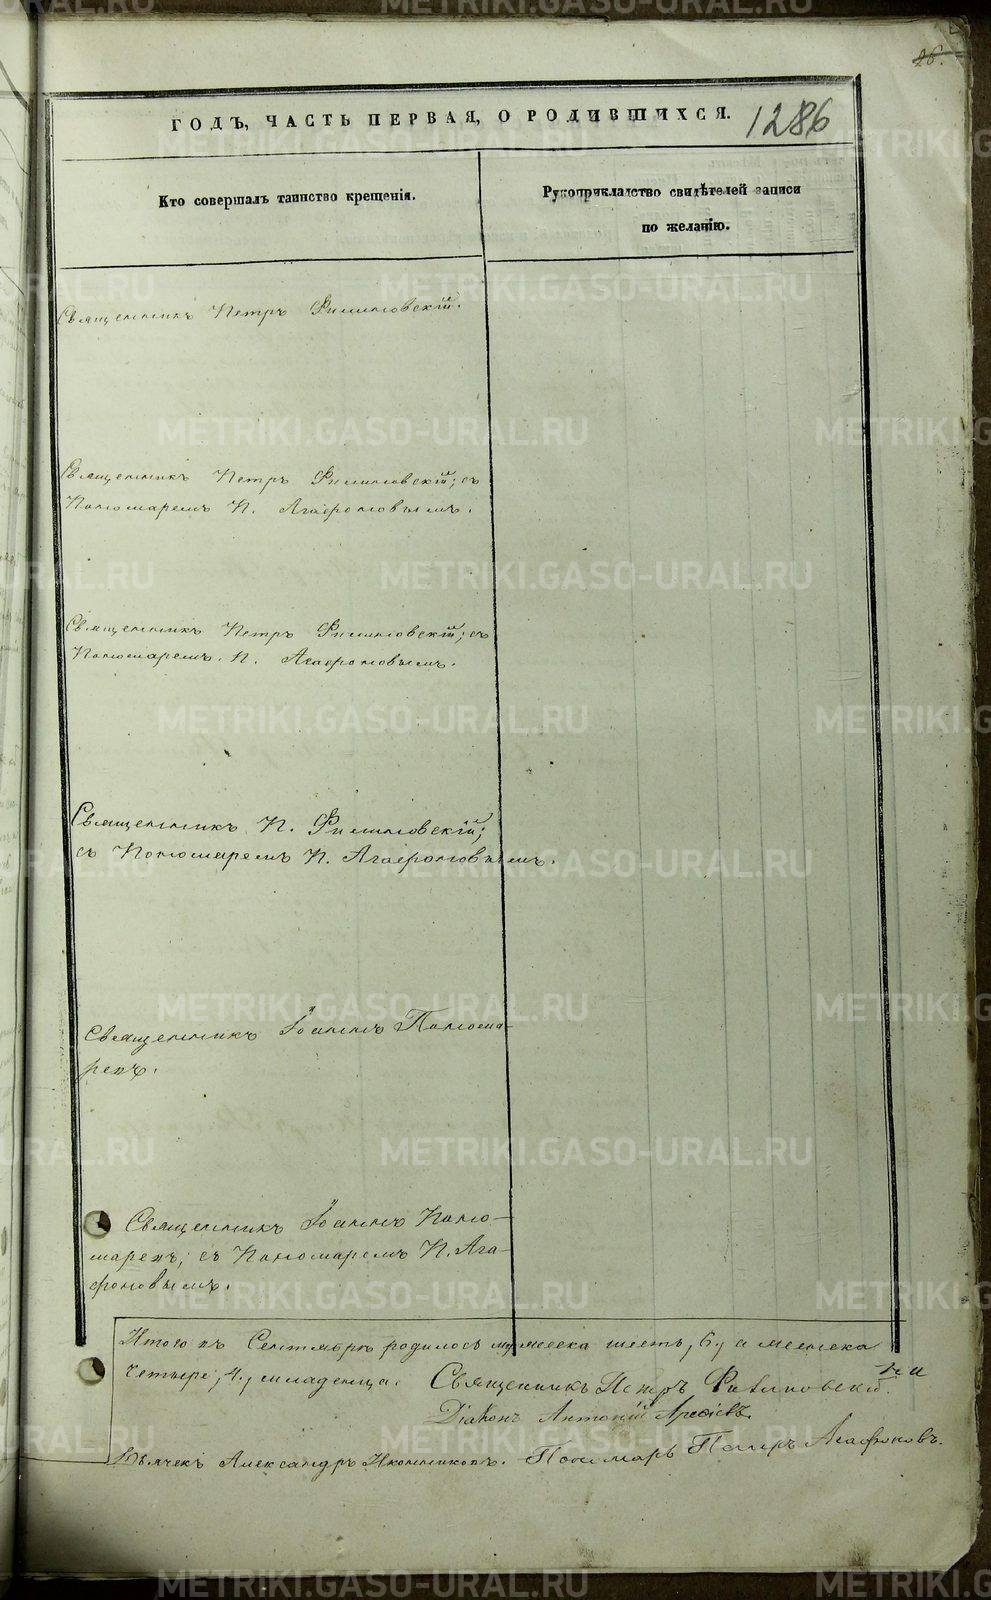 26.
ГОДЪ, ЧАСТЬ ПЕРВАЯ, О РОДИВШИХСЯ. 1286
Кто совершалъ таинство крещенія.
Рукоприкладство свидѣтелей записи
по желанію.
Священникъ Петръ Филиповскій.
Священникъ Петръ Филиповскій; съ
Пономаремъ П. Агафоновымъ.
Священникъ Петръ Филиповскій; съ
Пономаремъ П. Агафоновымъ.
Священникъ П. Филиповскій;
съ Пономаремъ П. Агафоновымъ.
Священникъ Іоаннъ Понома-
ревъ.
Священникъ Іоаннъ Поно-
маревъ; съ Пономаремъ П. Ага-
фоновымъ.
Итого въ Сентябрѣ родилось мужеска шесть, 6, а женска
четыре, 4, младенца. Священникъ Петръ Филиповскій.
Діаконъ Антоній
Александръ Иконниковъ. Пономарь Петръ Агафоновъ.
METRIKI.GASO-URAL.RU